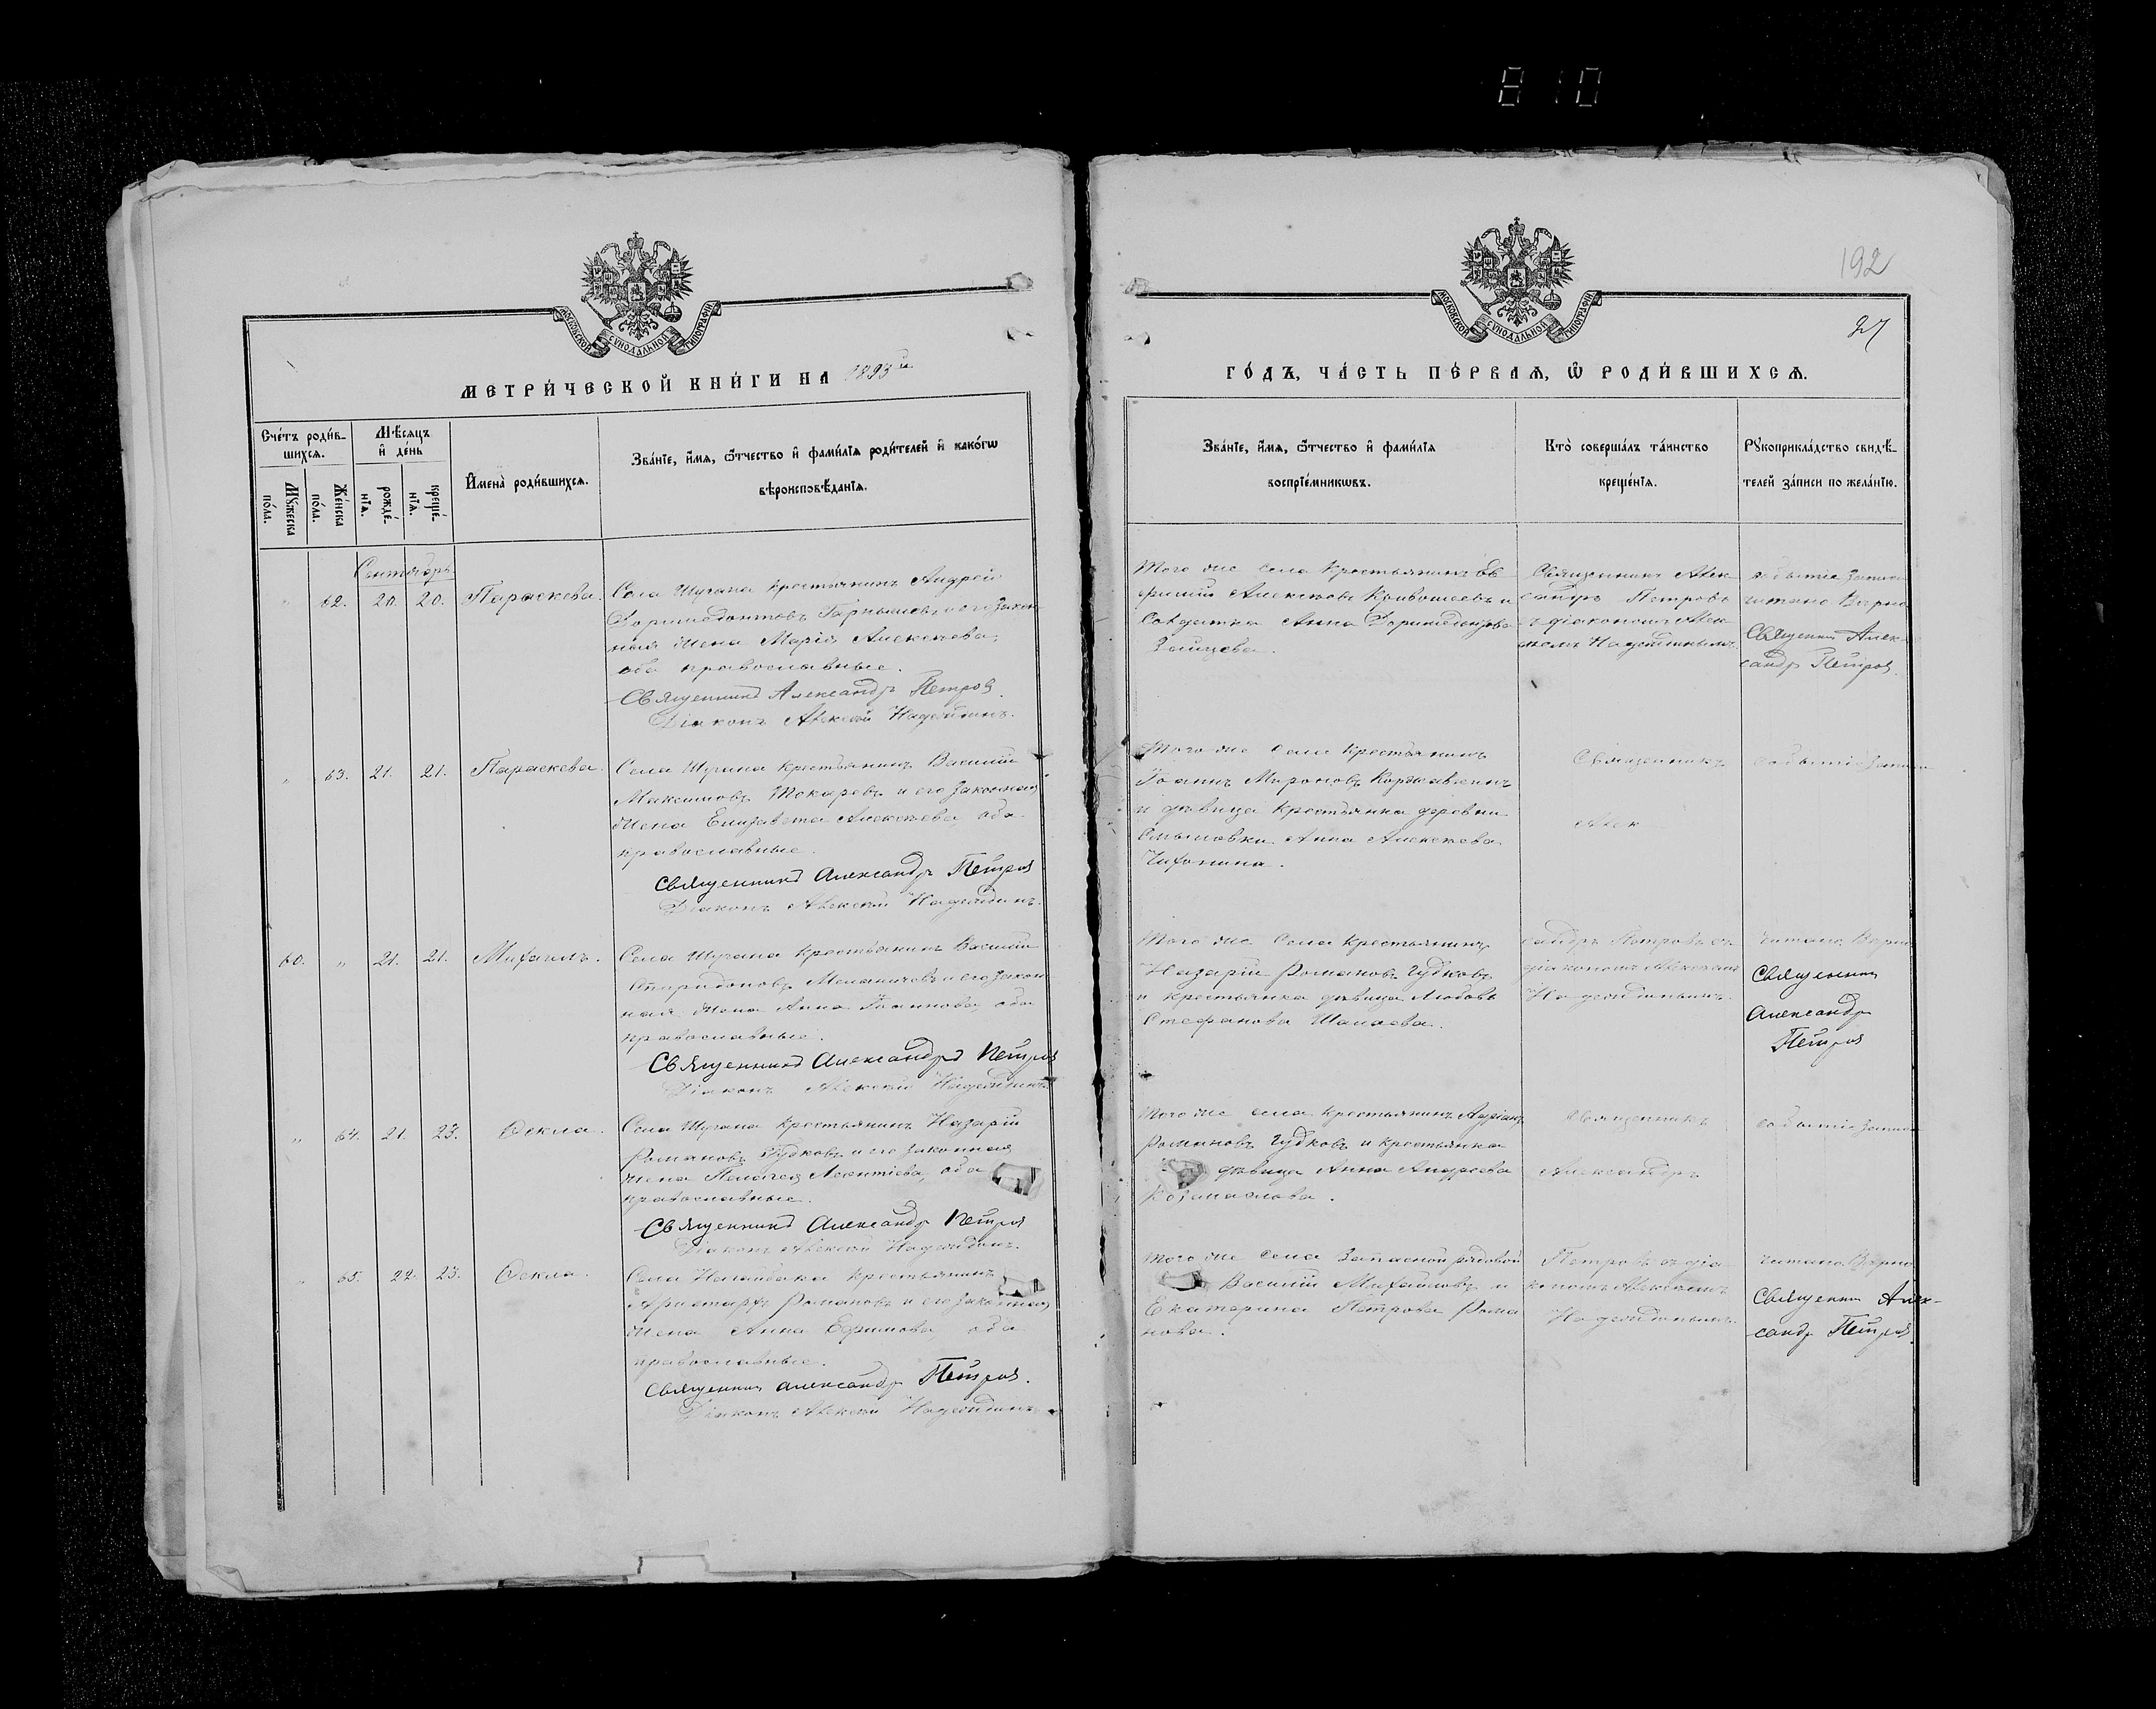 810
192
27
МОСКОВСКОЙ СУНОДАЛЬНОЙ ТИПОГРАФІИ
МЕТРИ́ЧЕСКОЙ КНИ́ГИ НА 1893 й
МОСКОВСКОЙ СУНОДАЛЬНОЙ ТИПОГРАФІИ
ГО́ДЪ, ЧА́СТЬ ПЕ́РВАЯ, Ѡ РОДИ́ВШИХСЯ.
Сче́тъ роди́в-
шихся.
Мꙋ́жеска по́ла.
Же́нска по́ла.
Мѣ́сяцъ и де́нь
рожде́нїя.
креще́нїя.
Имена̀ роди́вшихся.
Зва́нїе, и́мя, ѻ҆́тчество и фами́лїя роди́телей и како́гѡ
вѣроисповѣ́данїя.
Зва́нїе, и́мя, ѻ҆́тчество и фами́лїя
воспрїе́мникѡвъ.
Кто̀ соверша́лъ та́инство
креще́нїя.
Рꙋкоприкла́дство свидѣ́-
телей за́писи по жела́нїю.
Сентябрь
" 62. 20. 20. Параскева.
Села Шугана крестьянинъ Андрей
Доримедонтовъ и его закон
ная жена Марія Алексѣева,
оба православные.
Священникъ Александръ Петров.
Діаконъ Алексѣй Надеждинъ.
Того же села крестьянинъ Ев
фимій Алексѣевъ Кривошеевъ и
Солдатка Анна Доримедонтова
Зайцева.
Священникъ Алек
сандръ Петровъ
съ діакономъ Алек
сѣемъ Надеждинымъ.
событіе записи
читано. Вѣрно
Священникъ Алек-
сандръ Петров.
" 63. 21. 21. Параскева.
Села Шугана крестьянинъ Василій
Максимовъ Токаревъ и его законная
жена Елизавета Алексѣева, оба
православные.
Священникъ Александръ Петров
Діаконъ Алексѣй Надеждинъ.
Того же села крестьянинъ
Іоаннъ Мироновъ
и дѣвица крестьянка деревни
Анна Алексѣева
Священникъ
Алек
событіе записи
60. " 21. 21. Михаилъ.
Села Шугана крестьянинъ Василій
Спиридоновъ и его закон
ная жена Анна Іоаннова, оба
православные.
Священникъ Александръ Петров
Діаконъ Алексѣй Надеждинъ
Того же села крестьянинъ
Назарій Романовъ Гудковъ
и крестьянка дѣвица Любовь
Стефанова
сандръ Петровъ съ
діакономъ Алексѣемъ
Надеждинымъ.
читано. Вѣрно
Священникъ
Александр
Петров
" 64. 21. 23. Ѳекла.
Села Шугана крестьянинъ Назарій
Романовъ Гудковъ и его законная
жена Пелагея Леонтіева, оба
православные.
Священникъ Александръ Петров
Діаконъ Алексѣй Надеждинъ.
Того же села крестьянинъ Адріанъ
Романовъ Гудковъ и крестьянка
дѣвица Анна Андреева
Козмаслова.
Священникъ
Александръ
событіе записи
" 65. 22. 23. Ѳекла.
Села крестьянинъ
Аристархъ Романовъ и его законная
жена Анна Ефимова, оба
православные.
Священникъ Александръ Петров.
Діаконъ Алексѣй Надеждинъ
Того же села Запасной рядовой
Василій Михайловъ и
Екатерина Петрова Рома
нова.
Петровъ съ діа
кономъ Алексѣемъ
Надеждинымъ.
читано. Вѣрно
Священникъ Алек-
сандръ Петров